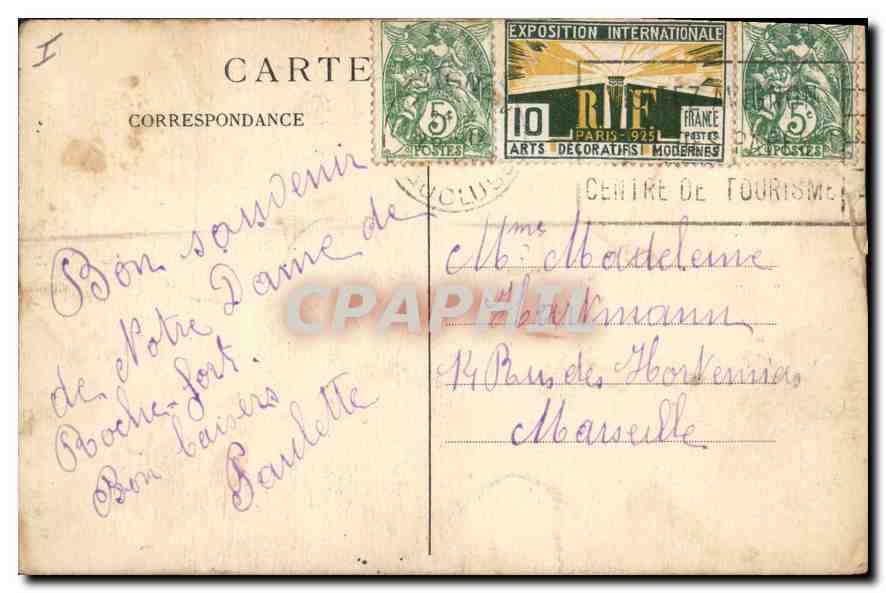 I
CARTE
CORRESPONDANCE
5c
POSTES
EXPOSITION INTERNATIONALE
10
R F
FRANCE
POSTES
PARIS-1925
ARTS DÉCORATIFS MODERNES
5c
POSTES
CENTRE DE TOURISME
Bon souvenir
de Notre Dame de
Roche-fort.
Bon baisers
Paulette
Mme Madeleine
14 Rue des Hortensias
Marseille
CPAPHIL